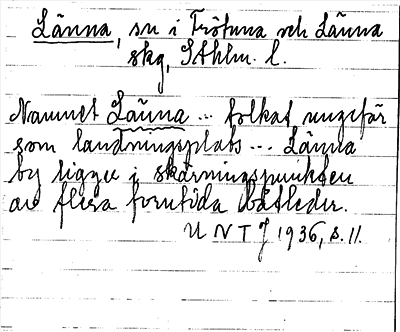 Länna, sn i Frötuna och Länna
skg, Sthlm. l.
Namnet Länna ... tolkat ungefär
som landningsplats ... Länna
by ligger i skärningspunkten
av flera forntida båtleder.
U N T J 1936, s. 11.